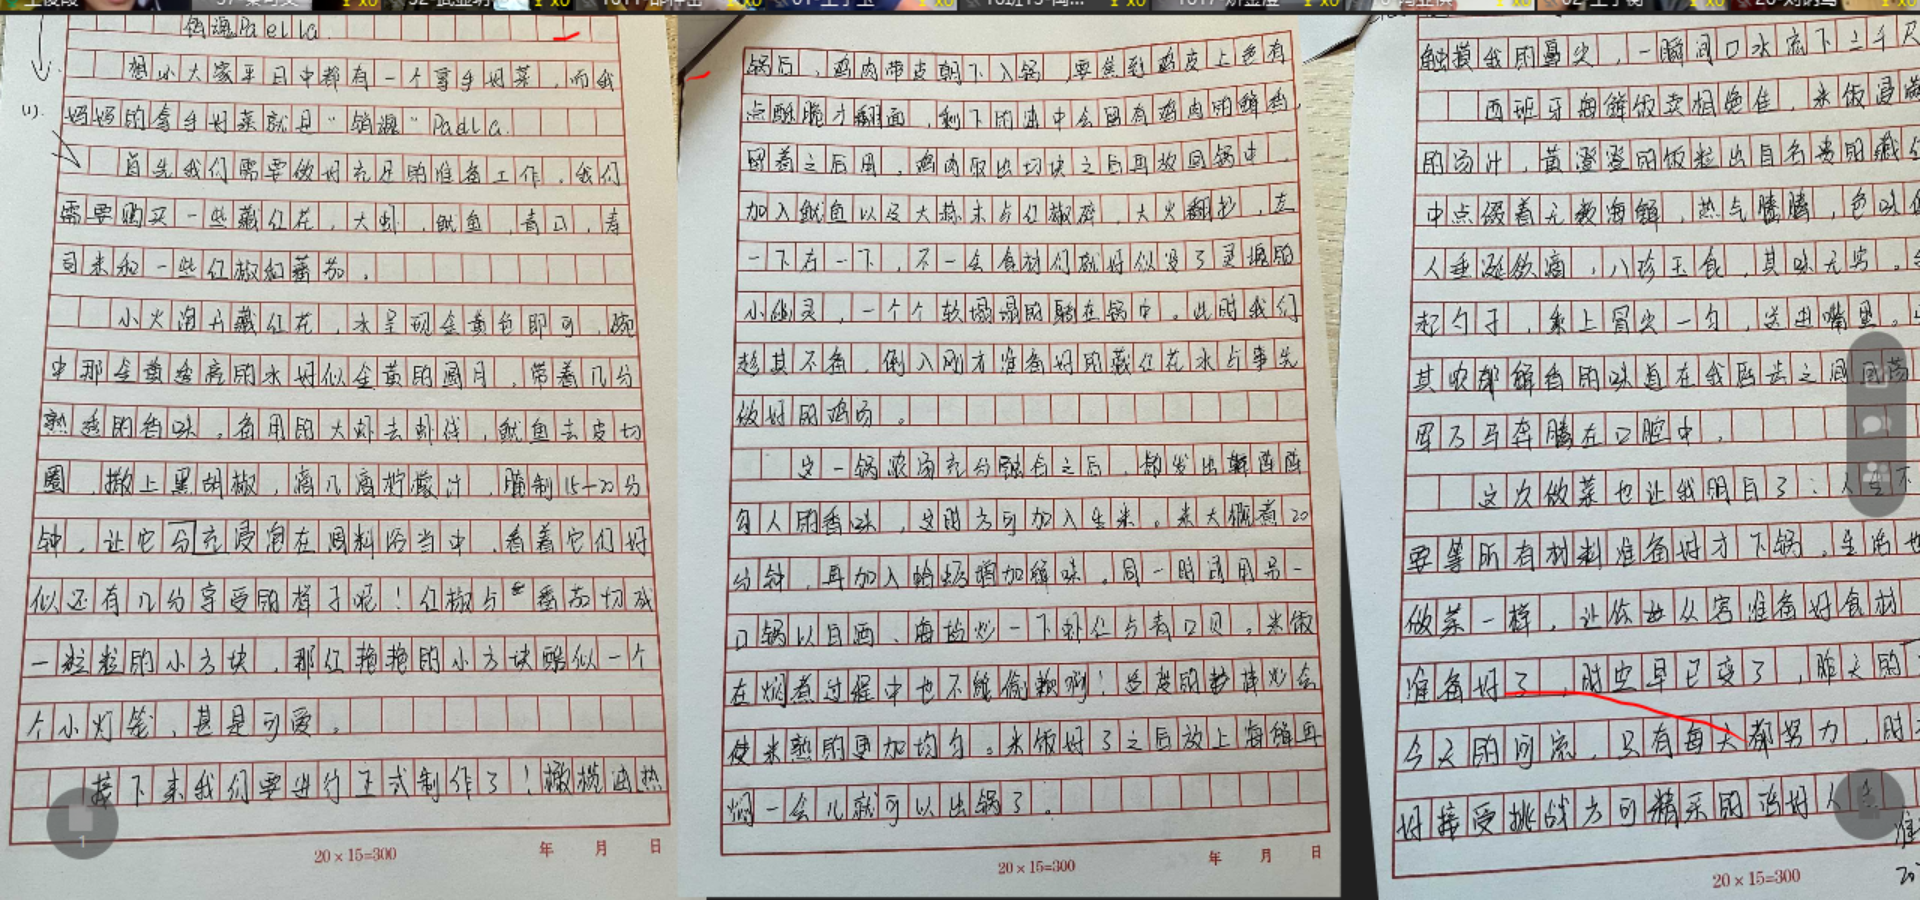 销魂Paella.
想必大家平日中都有一个拿手好菜,而我
妈妈的拿手好菜就是"销魂"Padla.
(1).
首先我们需要做好充足的准备工作。我们
需要购买一些藏红花,大虾,鱿鱼,青口,寿
司米和一些红椒和蕃茄。
小火泡开藏红花,水呈现金黄色即可,碗
中那金黄透亮的水好似金黄的圆月,带着几分
熟透的香味。备用的大虾去虾线,鱿鱼去皮切
圈,撒上黑胡椒,滴几滴柠檬汁,腌制15-20分
钟,让它充分浸泡在调料汤当中,看着它们好
似还有几分享受的样子呢!红椒与番茄切成
一粒粒的小方块,那红艳艳的小方块酷似一个
个小灯笼,甚是可爱。
接下来我们要进行正式制作了!橄榄油热
20×15=300 年 月 日
锅后,鸡肉带皮朝下入锅,要焦到鸡皮上色有
点酥脆才翻面,剩下的油中会留有鸡肉的鲜香,
留着之后用,鸡肉取出切块之后再放回锅中,
加入鱿鱼以及大蒜末与红椒碎,大火翻抄,左
一下右一下,不一会食材们就好似没了灵魂的
小幽灵,一个个软塌塌的躺在锅中。此时我们
趁其不备,倒入刚才准备好的藏红花水与事先
做好的鸡汤。
这一锅浓汤充分融合之后,都发出阵阵
勾人的香味,这时方可加入生米。米大概煮20
分钟,再加入蛤蜊增加鲜味。同一时间用另一
口锅以白酒、海盐炒一下虾仁与青口贝。米饭
在焖煮过程中也不能偷懒啊!适度的翻炒会
使米熟的更加均匀。米饭好了之后放上海鲜再
焖一会儿就可以出锅了。
20×15=300 年 月 日
触摸我的鼻尖,一瞬间口水流下三千尺
西班牙海鲜饭卖相绝佳,米饭浸满
的汤汁,黄澄澄的饭粒出自名贵的藏红
中点缀着无数海鲜,热气腾腾,色味
人垂涎欲滴,八珍玉食,其味无穷。
起勺子,乘上冒尖一勺,送进嘴里。
其浓郁鲜香的味道在我唇舌之间回荡
军万马奔腾在口腔中。
这次做菜也让我明白了:人生不
要等所有材料准备好才下锅。生活也
做菜一样,让你从容准备好食材
准备好了,时空早已变了,昨天的
今天的河流,只有每天都努力,时
好接受挑战方可精采的活好人生
20×15=300